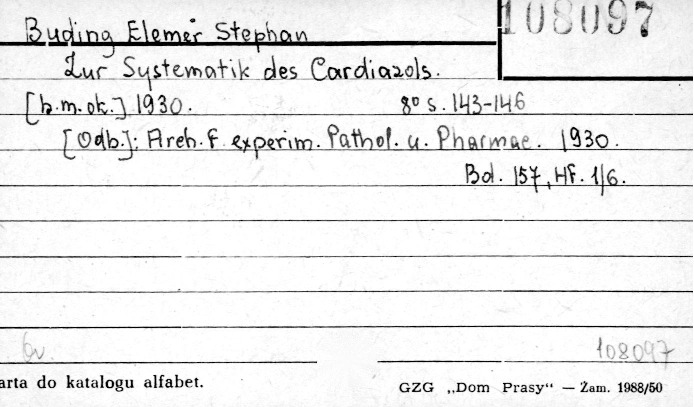 108097
Buding Elemér Stephan
Zur Systematik des Cardiazols.
[b.m.ok.] 1930. 8° s. 143-146
[Odb.]: Arch. f. experim. Pathol. u. Pharmac. 1930.
Bd. 157, Hf. 1/6.
108097
arta do katalogu alfabet.
GZG „Dom Prasy“ — Żam. 1988/50